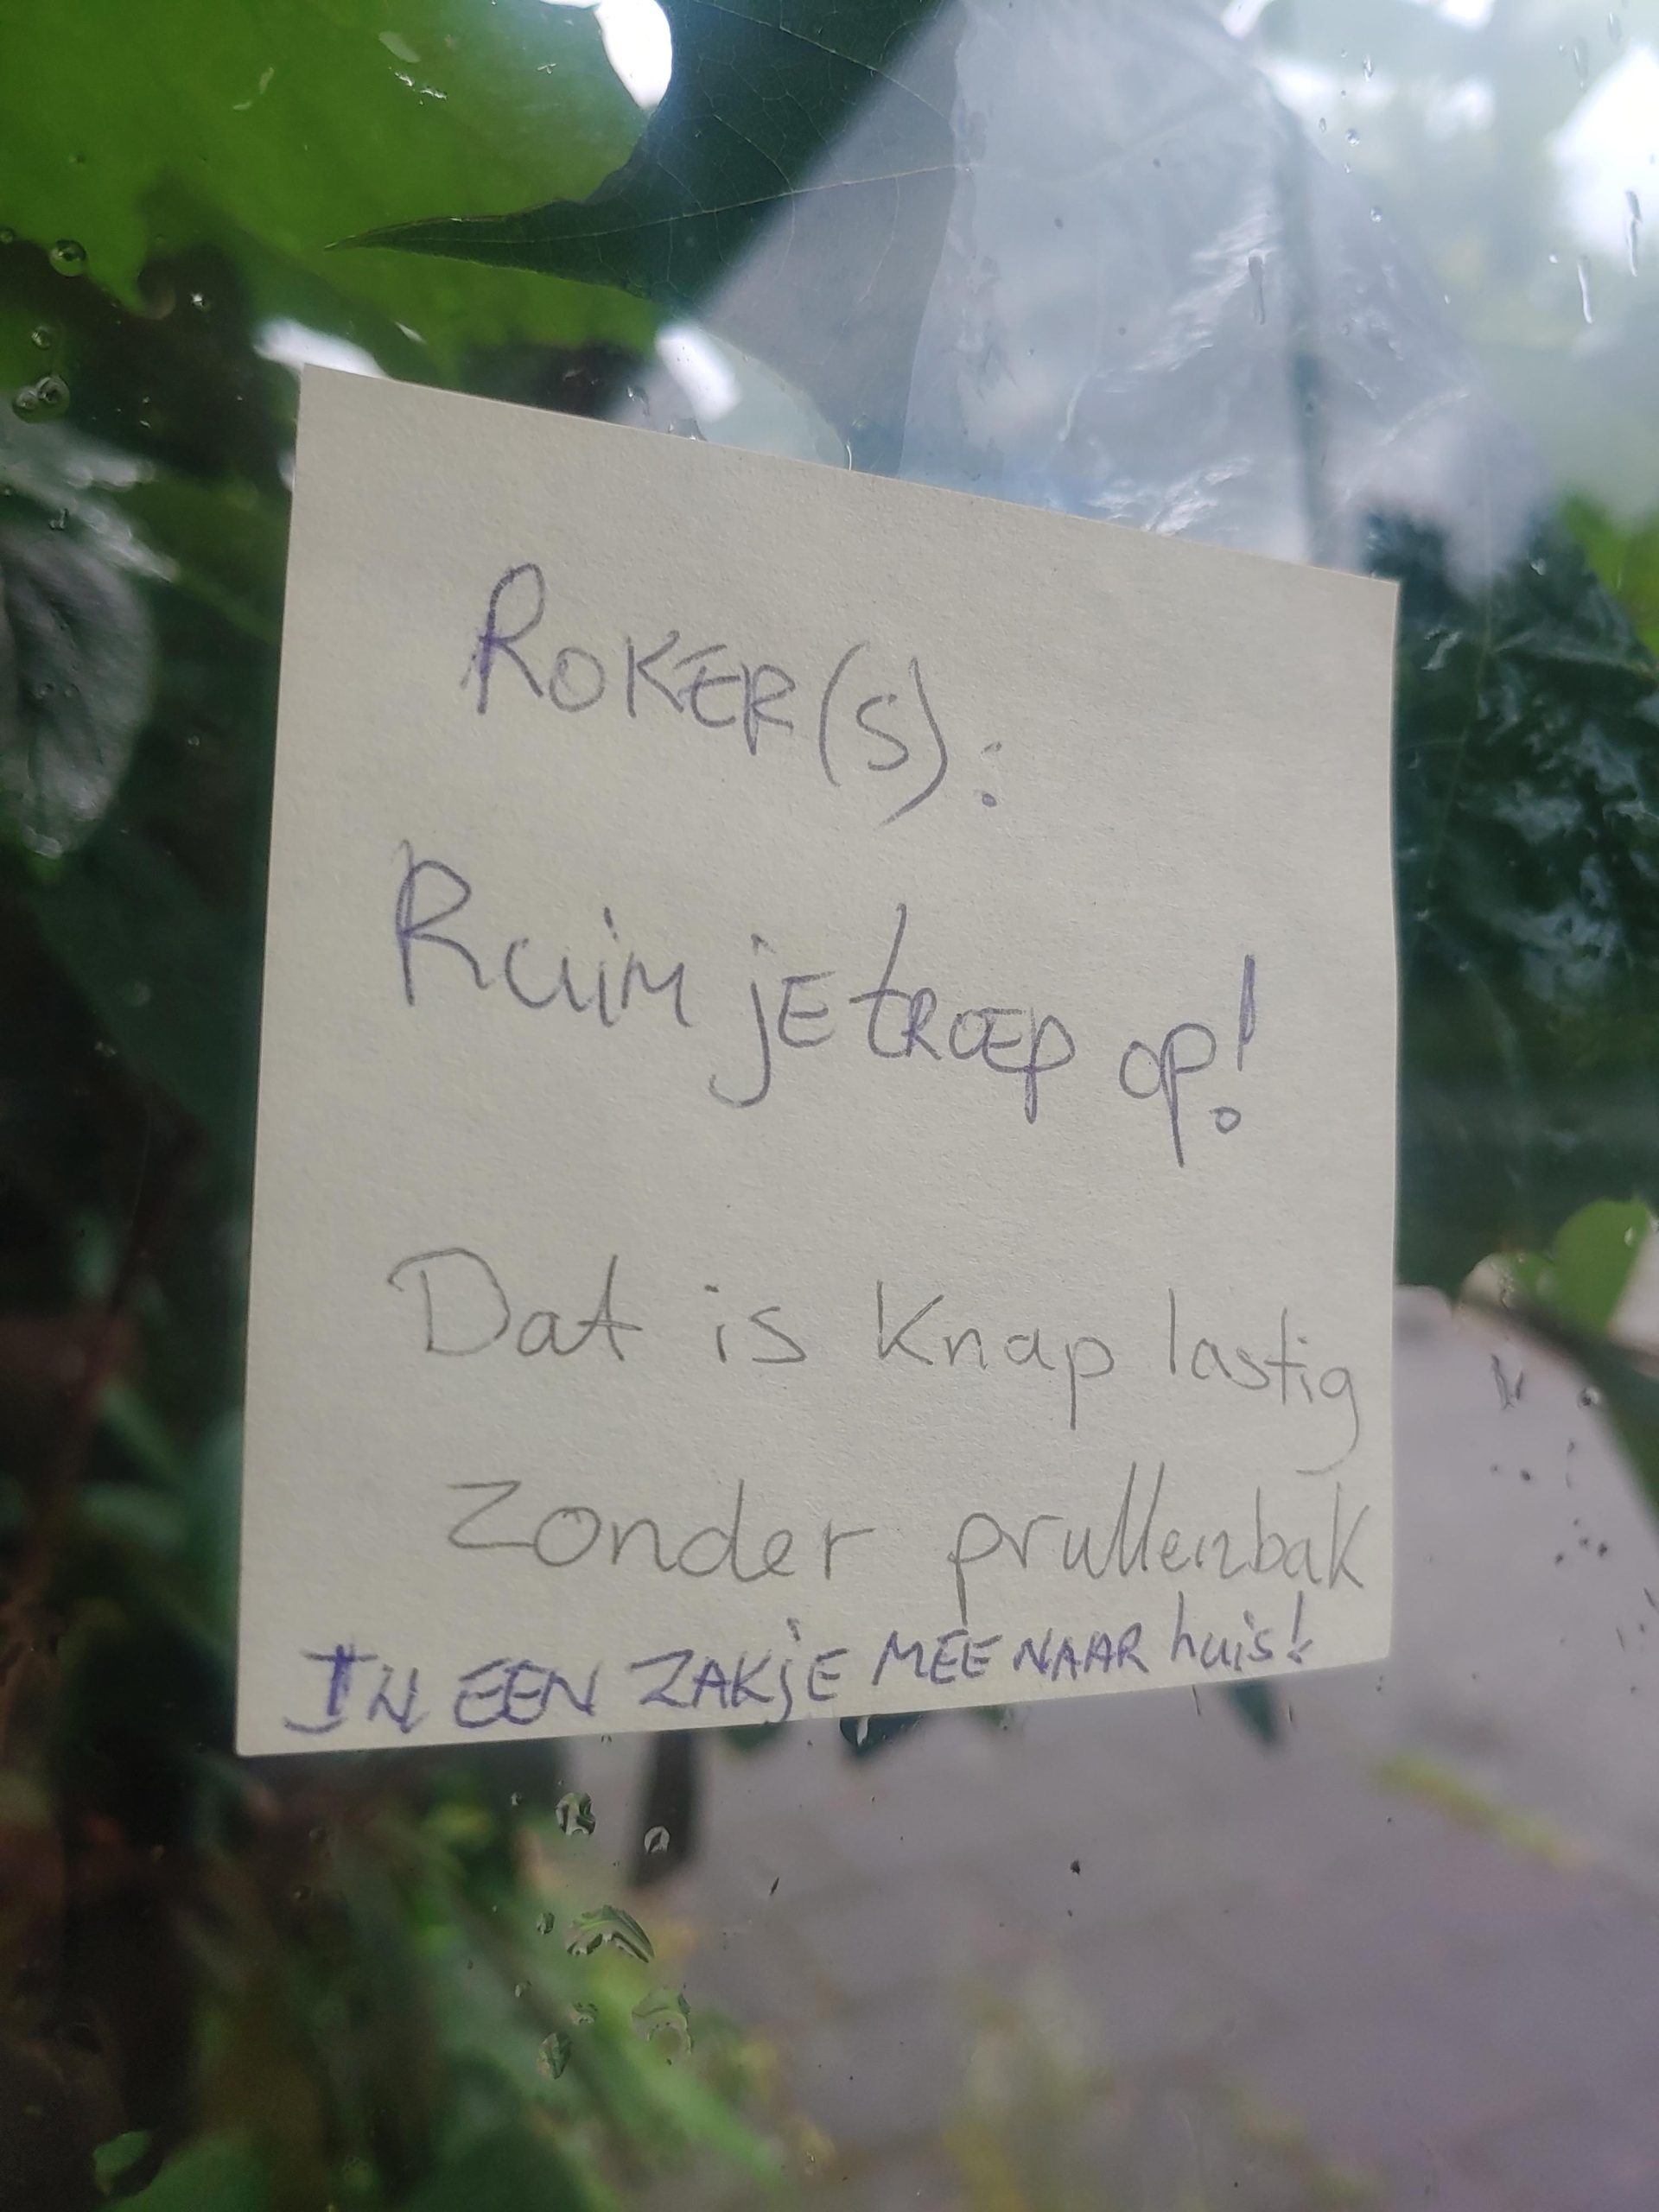 ROKER(S):
Ruim jE tROEP op!
Dat is knap lastig
zonder prullenbak
IN EEN ZAKjE MEE NAAR huis!